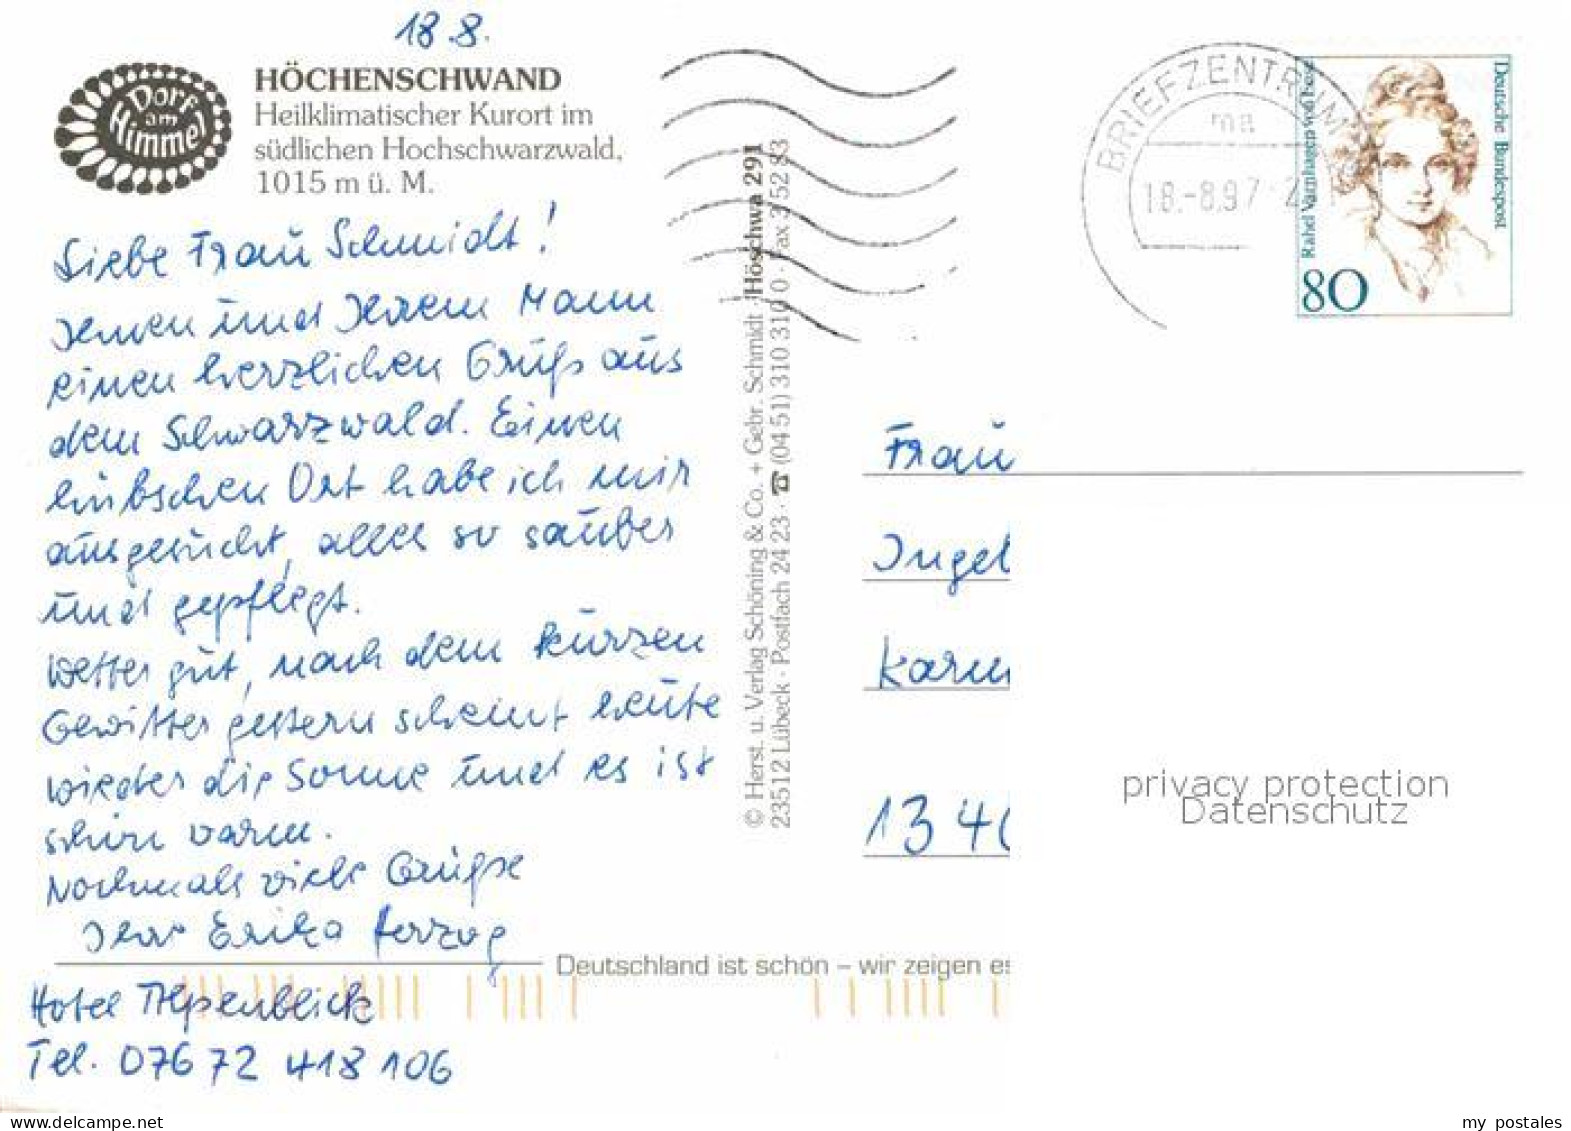 18.8.
Dorf
am
Himmel
HÖCHENSCHWAND
Heilklimatischer Kurort im
südlichen Hochschwarzwald,
1015 m ü. M.
Liebe Frau Schmidt!
Ihnen und Ihrem Mann
einen herzlichen Gruß aus
dem Schwarzwald. Einen
hübschen Ort habe ich mir
ausgesucht, alles so sauber
und gepflegt.
Wetter gut, nach dem kurzen
Gewitter gestern scheint heute
wieder die Sonne und es ist
schön warm.
Nochmals viele Grüße
Ihre Erika Herzog
Hotel Alpenblick
Tel. 07672 418 106
Deutschland ist schön – wir zeigen es
© Herst. u. Verlag Schöning & Co. + Gebr. Schmidt · Höschwa 291
23512 Lübeck · Postfach 24 23 · ☎ (04 51) 310 310 0 · Fax 3 52 83
BRIEFZENTRUM
ma
18.-8.97
Rahel Varnhagen von Ense
Deutsche Bundespost
80
Frau
Ingel
Karm
1340
privacy protection
Datenschutz
www.delcampe.net
my_postales